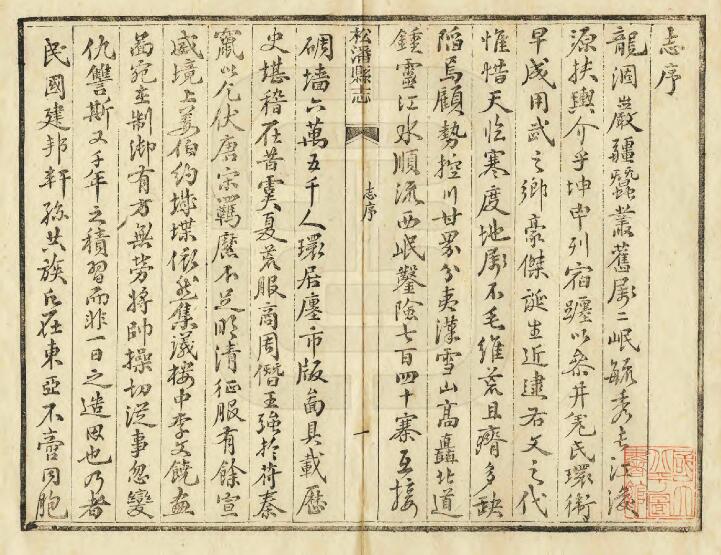 志序
龍涸巖疆蠶叢舊屬二岷毓秀長江發
源扶輿介乎坤申列宿躔以參井羌氏環衛
早成用武之鄉豪傑誕生近逮右文之代
惟惜天陰寒度地屬不毛維荒且瘠多缺
陷焉顧勢控川甘界分夷漢雪山高矗北道
鍾靈江水順流西岷鑿險七百四十寨互接
松潘縣志
志序
一
碉墻六萬五千人環居廛市版圖具載歷
史堪稽在昔虞夏荒服商周僭王強於苻秦
竄以乞伏唐宋羈縻不足明清征服有餘宣
威境上姜伯約堞依然集議樓中李文饒畫
圖宛在制御有方無勞將帥操切從事忽變
仇讐斯又千年之積習而非一日之造因也乃者
民國建邦軒孫共族氏在東亞不啻同胞